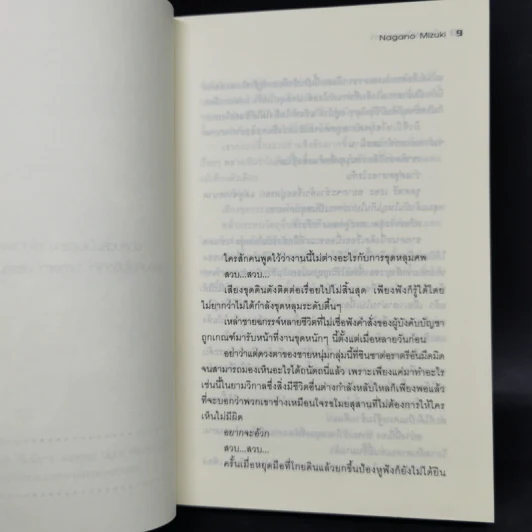 Nagano Mizuki 9
ใครสักคนพูดไว้ว่างานนี้ไม่ต่างอะไรกับการขุดหลุมศพ
สวบ...สวบ...
เสียงขุดดินดังติดต่อเรื่อยไปไม่สิ้นสุด เพียงฟังก็รู้ได้โดย
ไม่ยากว่าไม่ได้กำลังขุดหลุมระดับตื้นๆ
เหล่าชายฉกรรจ์หลายชีวิตที่ไม่เชื่อฟังคำสั่งของผู้บังคับบัญชา
ถูกเกณฑ์มารับหน้าที่งานขุดหนักๆ นี้ตั้งแต่เมื่อหลายวันก่อน
อย่าว่าแต่ดวงตาของชายหนุ่มกลุ่มนี้ที่ชินชาต่อราตรีอันมืดมิด
จนสามารถมองเห็นอะไรได้ถนัดถนี่แล้ว เพราะเพียงแค่มาทำอะไร
เช่นนี้ในยามวิกาลซึ่งสิ่งมีชีวิตอื่นต่างกำลังหลับใหลก็เพียงพอแล้ว
ที่จะบอกว่าพวกเขาช่างเหมือนโจรขโมยสุสานที่ไม่ต้องการให้ใคร
เห็นไม่มีผิด
อยากจะอ้วก
สวบ...สวบ...
ครั้นเมื่อหยุดมือที่โกยดินแล้วยกขึ้นป้องหูฟังก็ยังไม่ได้ยิน